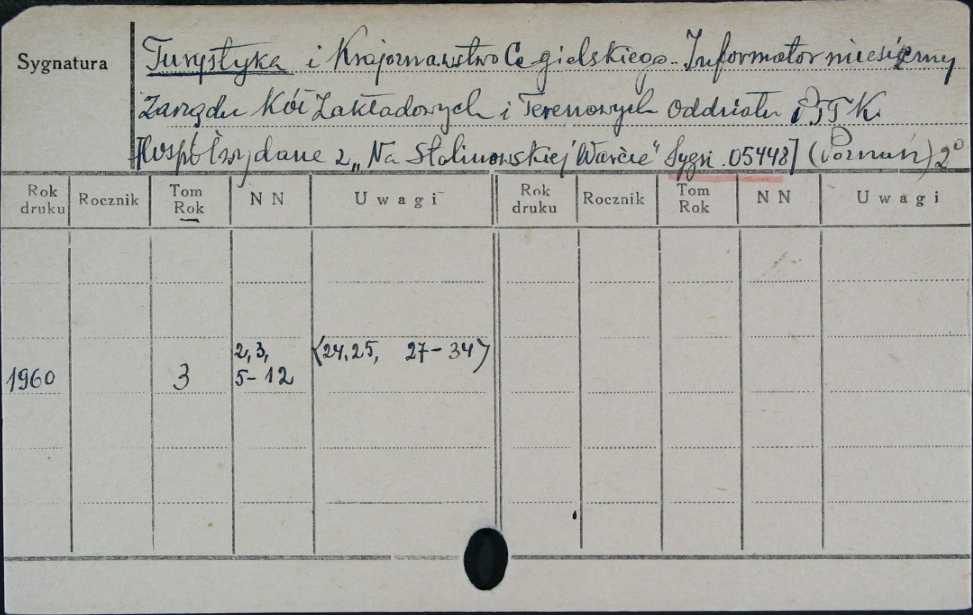 Sygnatura
Turystyka i Krajoznawstwo Cegielskiego. Informator miesięczny
Zarządu Kół Zakładowych i Terenowych Oddziału PTTK.
[Współwydane z „Na Stalinowskiej Warcie" Sygn. 05448] (Poznań) 2°
Rok druku Rocznik Tom Rok N N Uwagi Rok druku Rocznik Tom Rok N N Uwagi
2, 3, (24, 25, 27-34)
1960 3 5-12